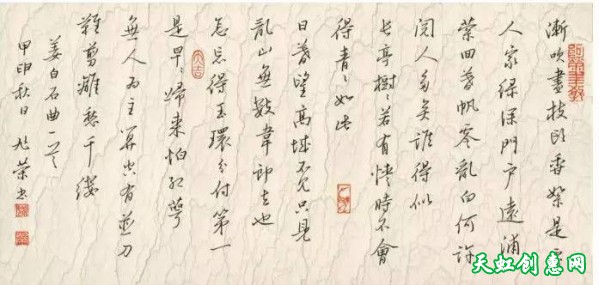 漸吹盡枝頭香絮是
人家綠深門戶遠浦
縈回暮帆零亂向何許
閱人多矣誰得似
長亭樹〻若有情時不會
得青〻如此
日暮望高城不見只見
亂山無數韋郎去也
怎忘得玉環分付第一
是早〻歸來怕紅萼
無人為主算空有並刀
難翦離愁千縷
姜白石曲一首
甲申秋日 榮書
天虹创意网